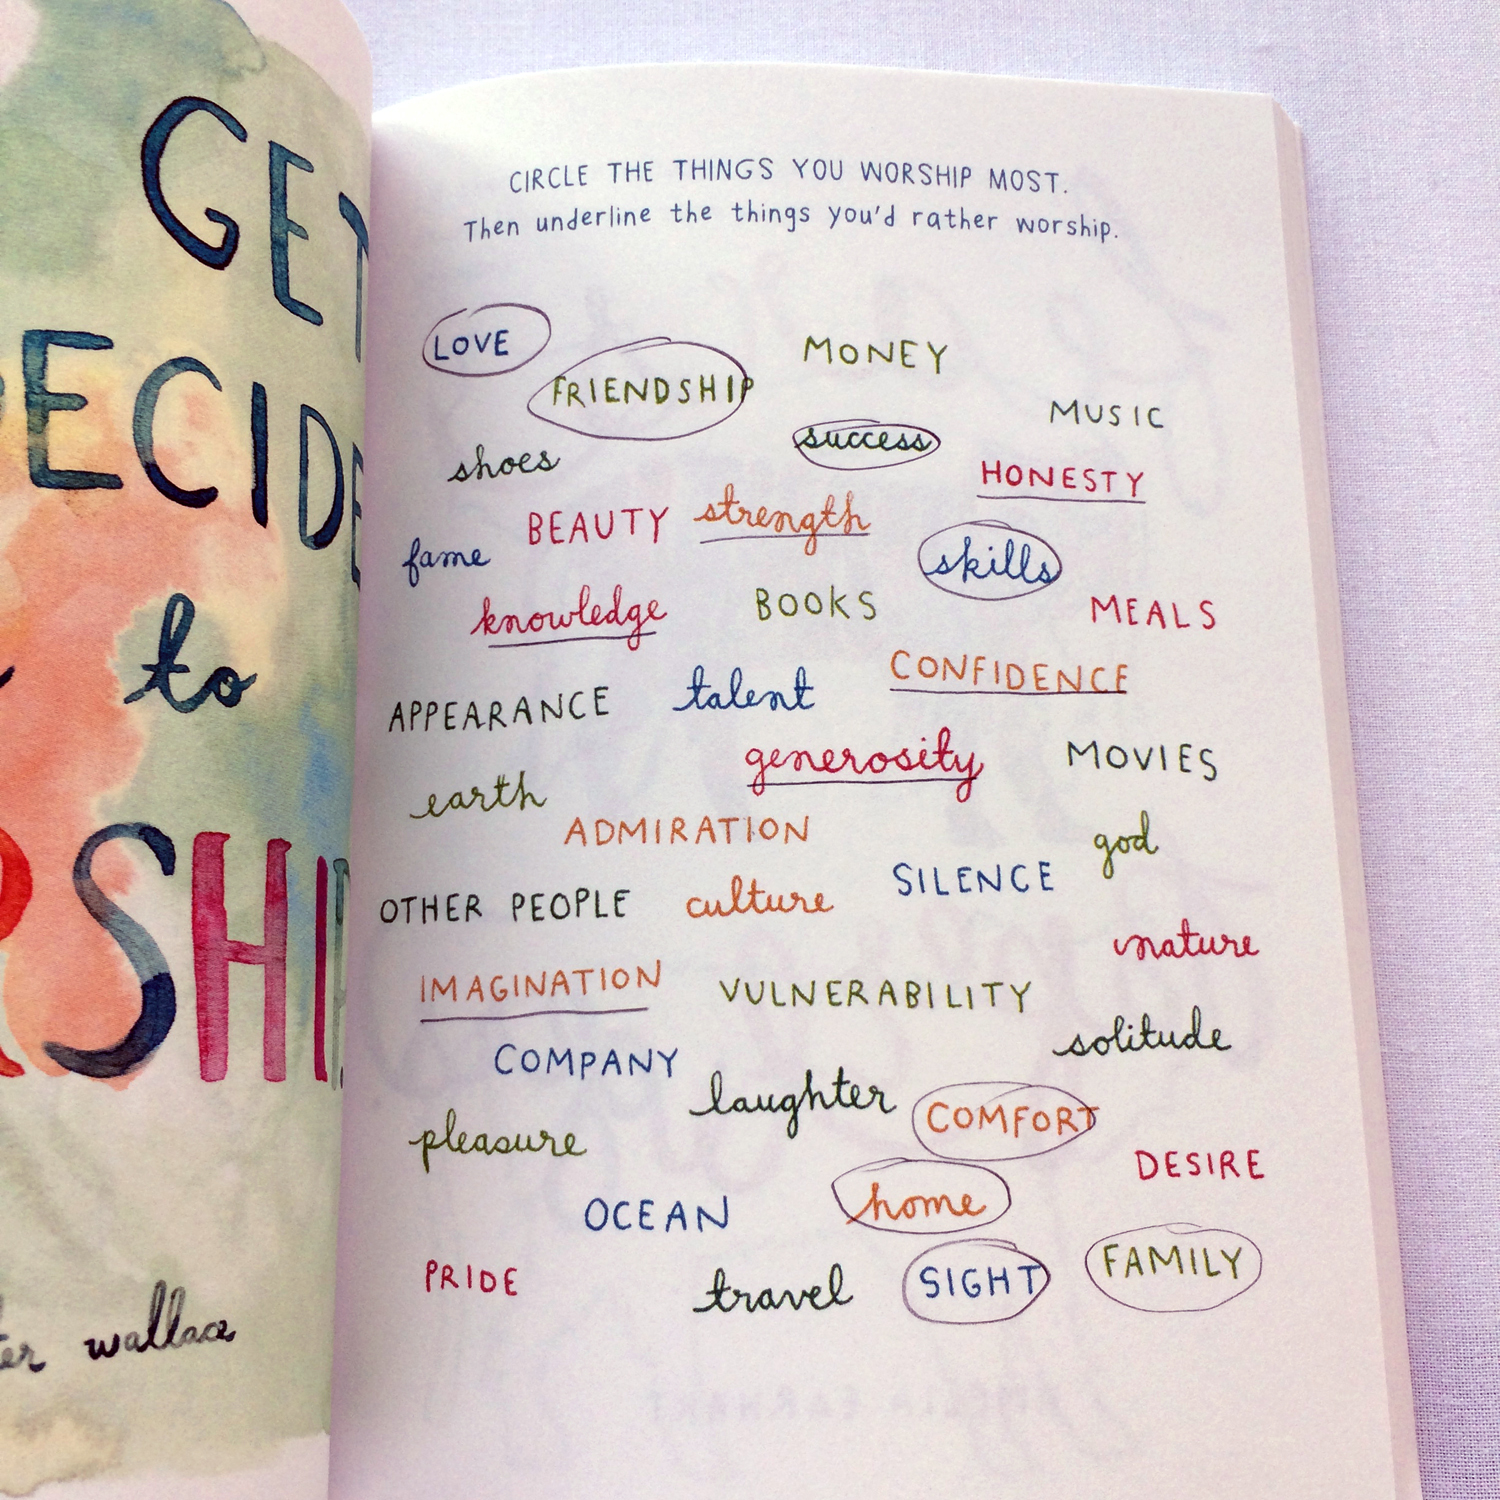 GET
DECIDE
to
RSHIP.
wallace
CIRCLE THE THINGS YOU WORSHIP MOST.
Then underline the things you'd rather worship.
LOVE
FRIENDSHIP
MONEY
MUSIC
shoes
success
HONESTY
fame
BEAUTY
strength
skills
knowledge
BOOKS
MEALS
APPEARANCE
talent
CONFIDENCE
generosity
MOVIES
earth
ADMIRATION
god
OTHER PEOPLE
culture
SILENCE
nature
IMAGINATION
VULNERABILITY
solitude
COMPANY
laughter
COMFORT
pleasure
DESIRE
OCEAN
home
PRIDE
travel
SIGHT
FAMILY